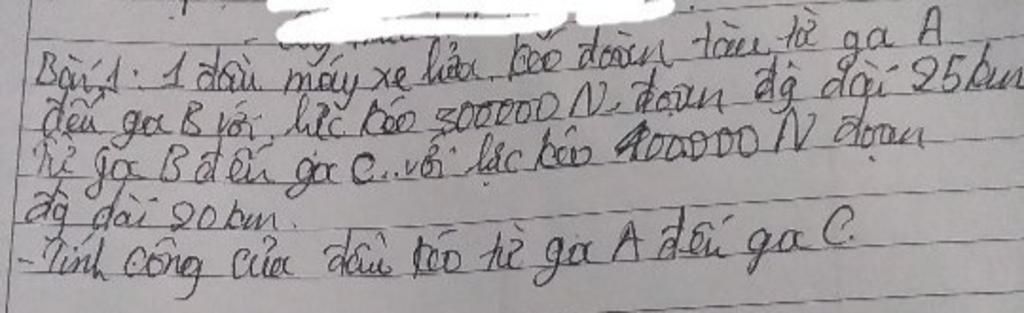 Bài 1: 1 đầu máy xe lửa kéo đoàn tàu từ ga A
đến ga B với lực kéo 300000 N. đoạn đg dài 25km
Từ ga B đến ga C với lực kéo 400000 N đoạn
đg dài 20km.
- Tính công của đầu kéo từ ga A đến ga C.